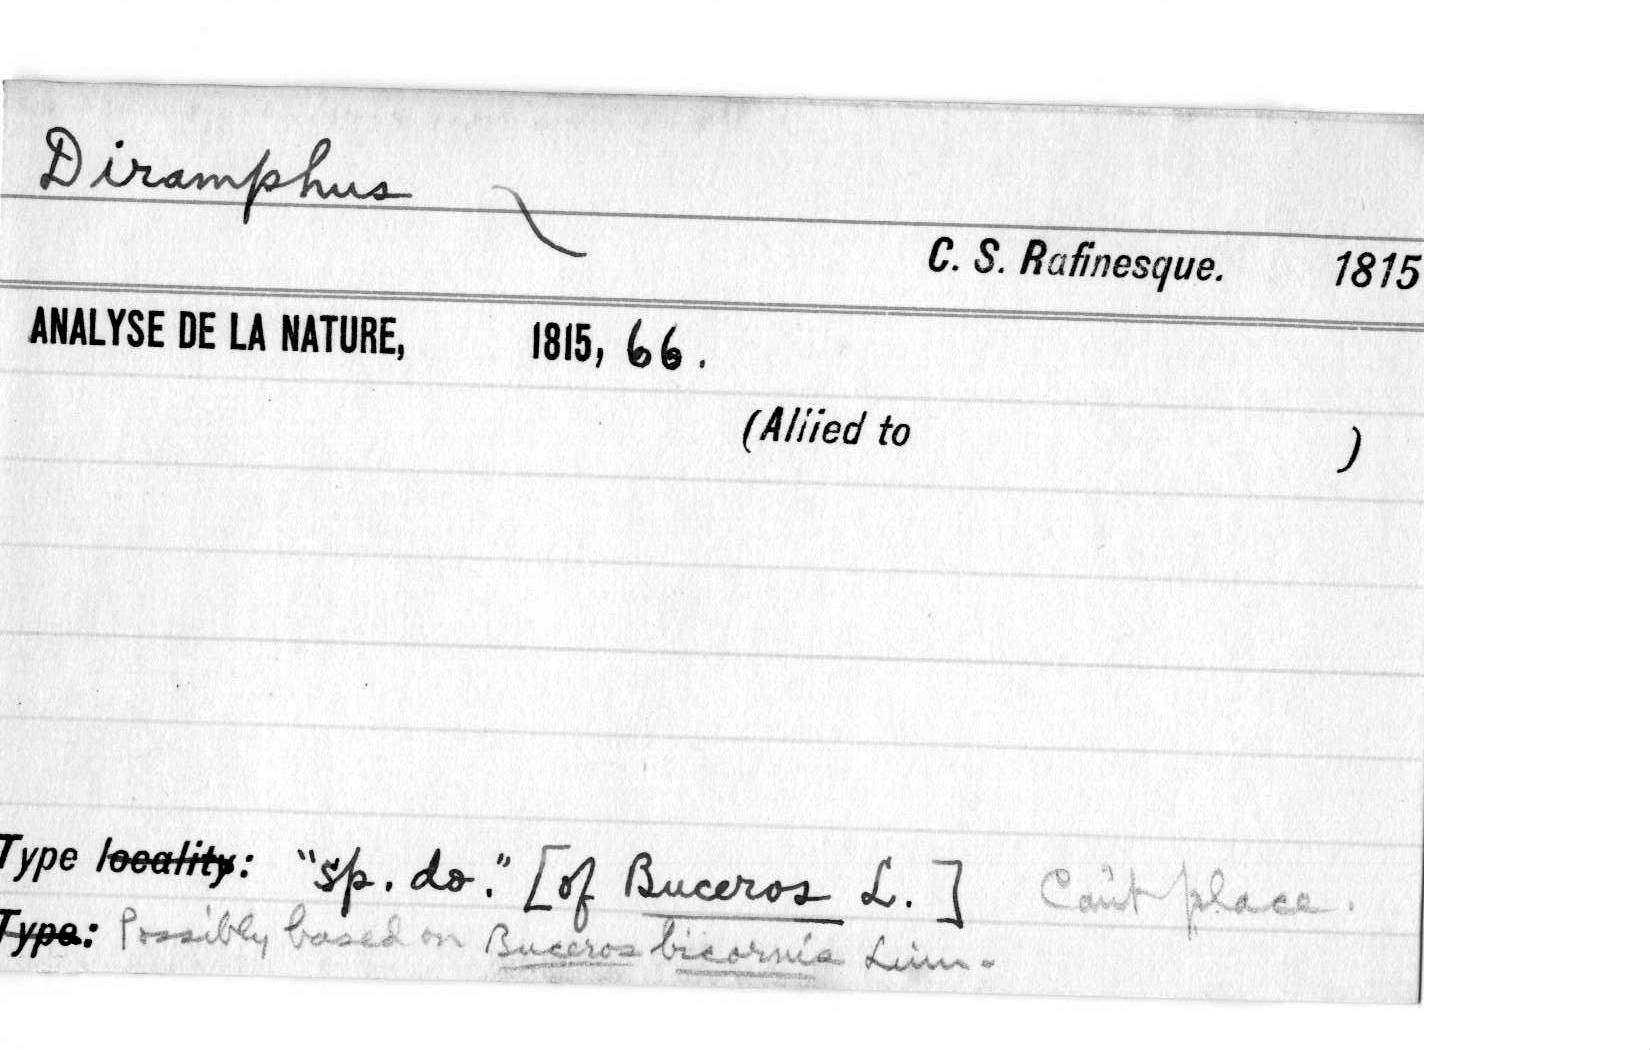 Diramphus
C. S. Rafinesque. 1815
ANALYSE DE LA NATURE, 1815, 66.
(Allied to )
Type locality: "sp. do." [of Buceros L.] Can't place.
Type: Possibly based on Buceros bicornis Linn.